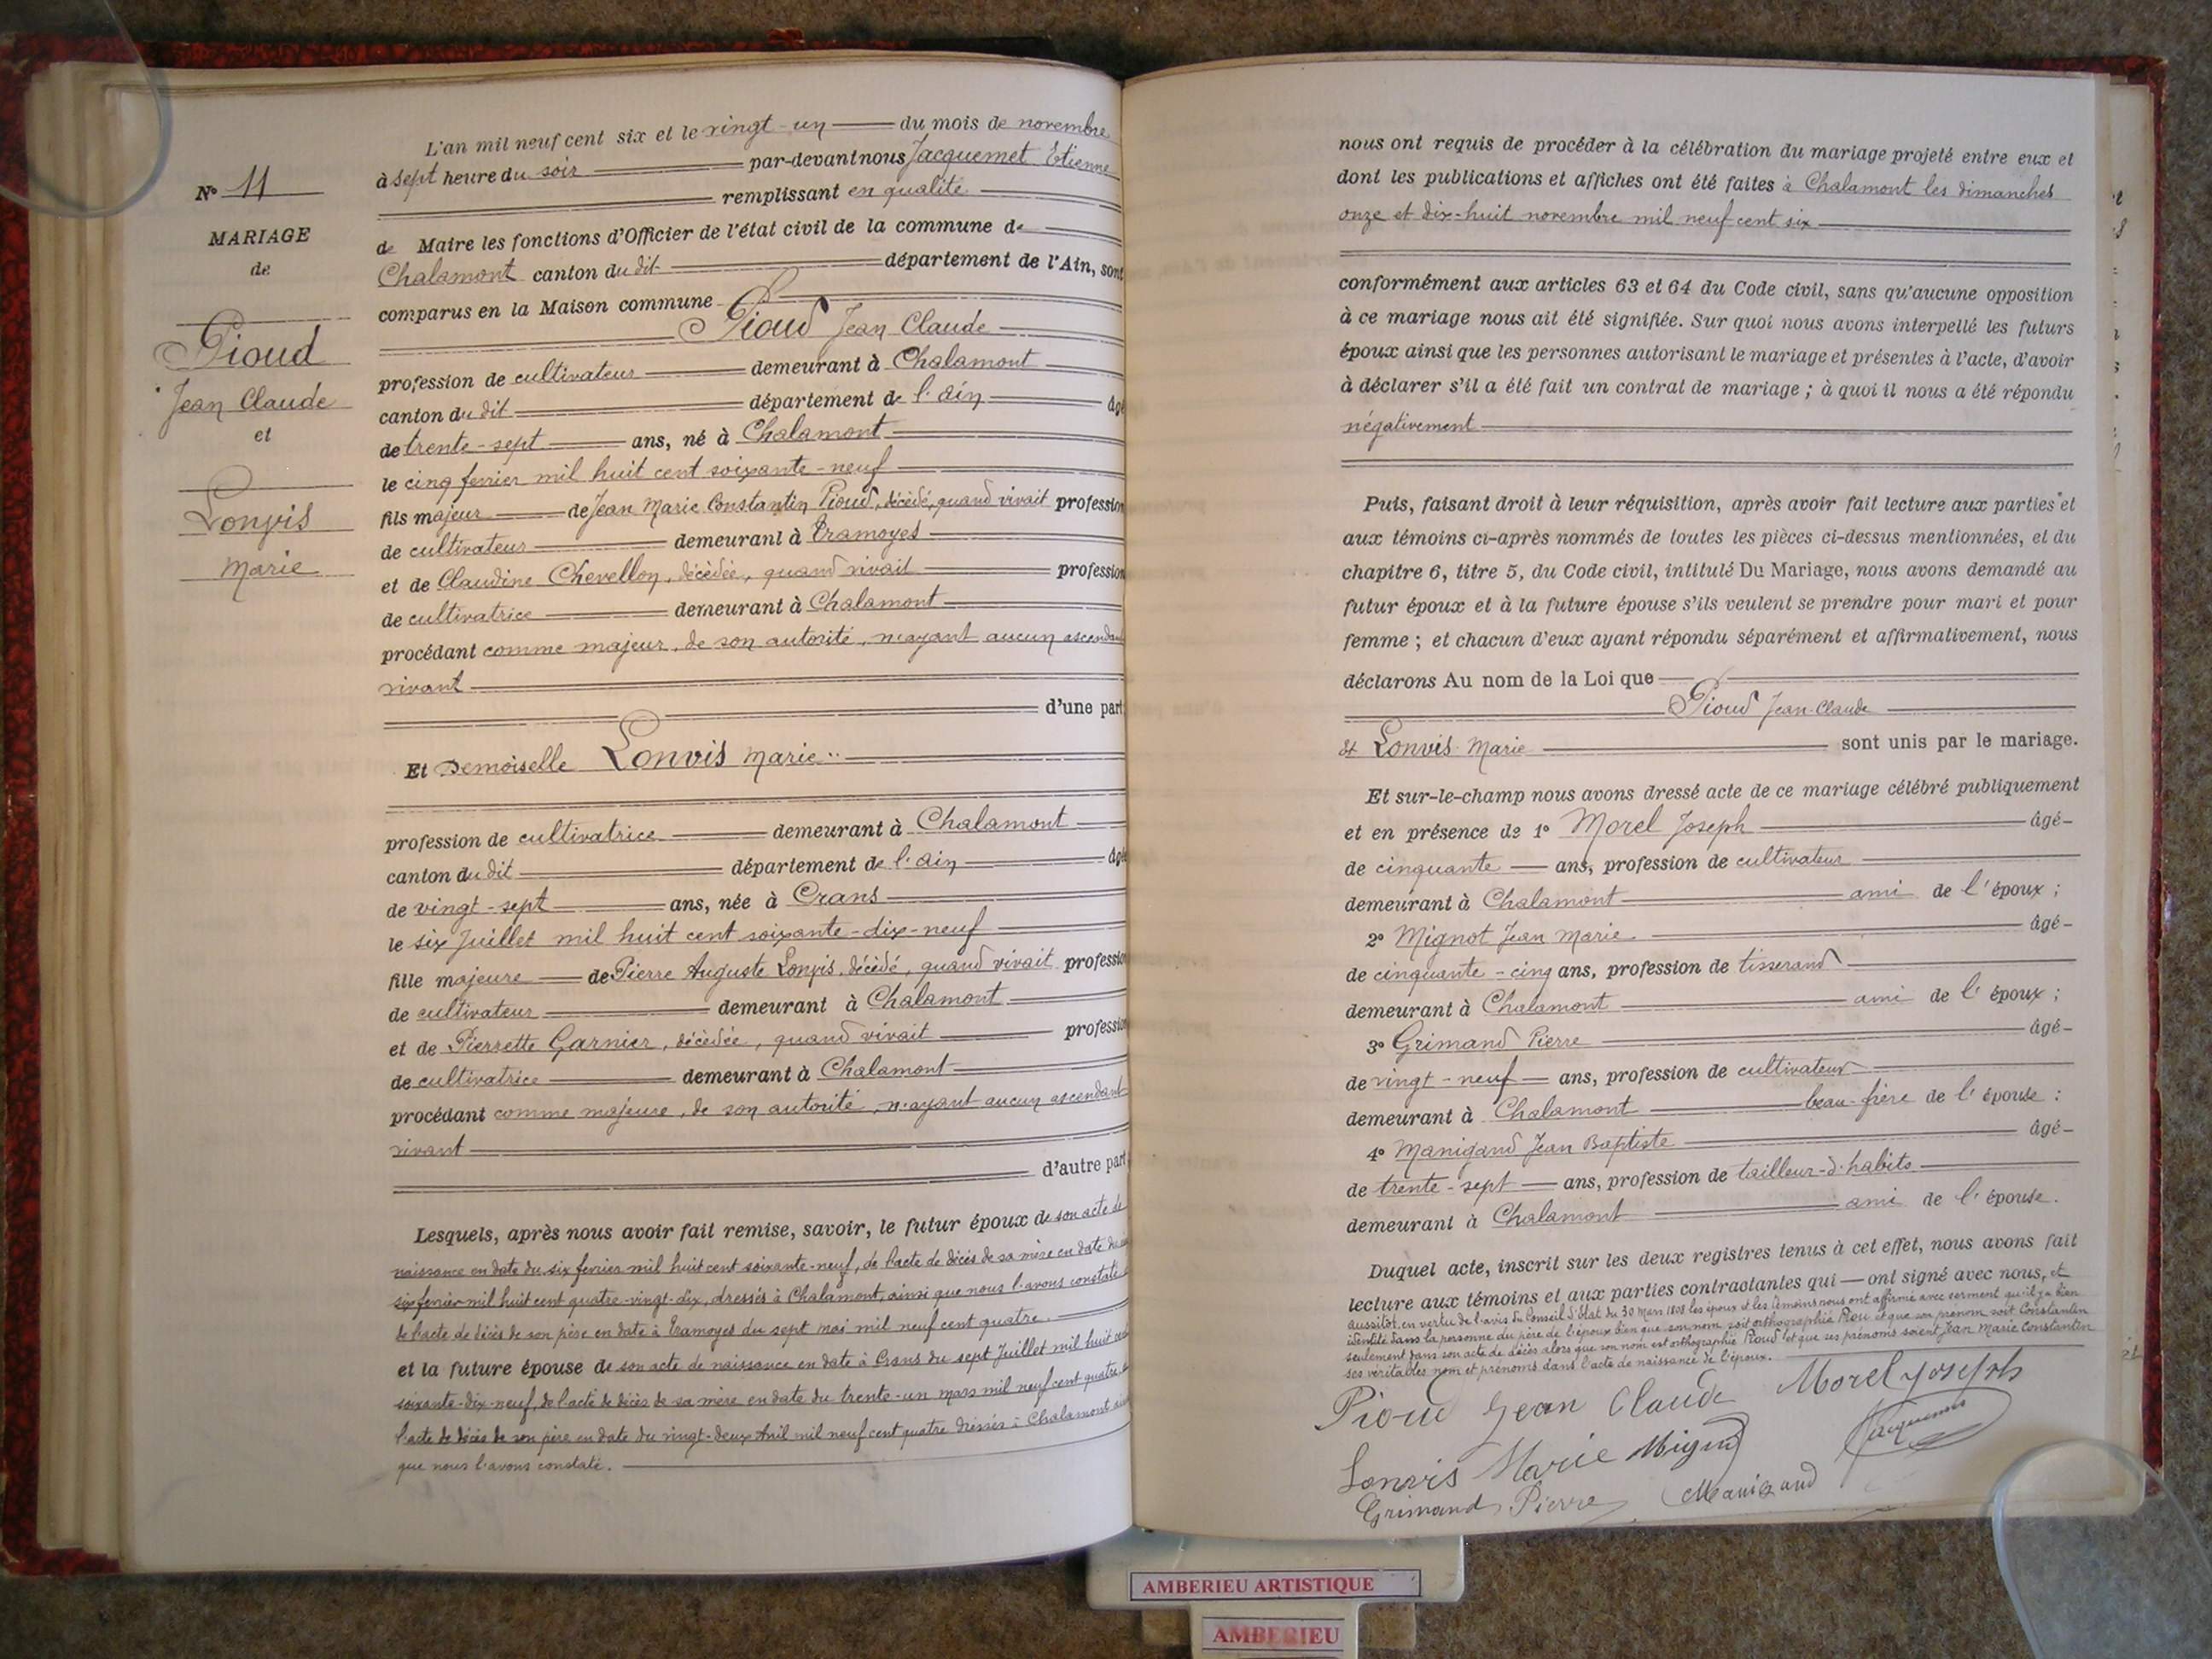 L'an mil neuf cent six et le vingt-un du mois de novembre
à sept heure du soir par-devant nous Jacquemet Etienne
remplissant en qualité
de Maire les fonctions d'Officier de l'état civil de la commune de
Chalamont canton du dit département de l'Ain, sont
comparus en la Maison commune
Pioud Jean Claude
profession de cultivateur demeurant à Chalamont
canton du dit département de l'ain âgé
de trente-sept ans, né à Chalamont
le cinq fevrier mil huit cent soixante-neuf
fils majeur de Jean Marie Constantin Pioud, décédé, quand vivait profession
de cultivateur demeurant à Tramoyes
et de Claudine Chevellon, décèdée, quand vivait profession
de cultivatrice demeurant à Chalamont
procédant comme majeur, de son autorité, n'ayant aucun ascendant
vivant
d'une part
Et Demoiselle Lonvis Marie
profession de cultivatrice demeurant à Chalamont
canton du dit département de l'ain âgé
de vingt-sept ans, née à Crans
le six Juillet mil huit cent soixante-dix-neuf
fille majeure de Pierre Auguste Lonvis, décédé, quand vivait profession
de cultivateur demeurant à Chalamont
et de Pierrette Garnier, décèdée, quand vivait profession
de cultivatrice demeurant à Chalamont
procédant comme majeure, de son autorité, n'ayant aucun ascendant
vivant
d'autre part
Lesquels, après nous avoir fait remise, savoir, le futur époux de son acte de
naissance en date du six fevrier mil huit cent soixante-neuf, de l'acte de décès de sa mère en date du
six fevrier mil huit cent quatre-vingt-dix, dressés à Chalamont, ainsi que nous l'avons constaté
de l'acte de décès de son père en date à Tramoyes du sept mai mil neuf cent quatre.
et la future épouse de son acte de naissance en date à Crans du sept Juillet mil huit cent
soixante-dix-neuf, de l'acte de décès de sa mère en date du trente-un mars mil neuf cent quatre, de
l'acte de décès de son père en date du vingt-deux Avril mil neuf cent quatre dressés à Chalamont ainsi
que nous l'avons constaté.
N° 11
MARIAGE
de
Pioud
Jean Claude
et
Lonvis
Marie
nous ont requis de procéder à la célébration du mariage projeté entre eux et
dont les publications et affiches ont été faites à Chalamont les dimanches
onze et dix-huit novembre mil neuf cent six
conformément aux articles 63 et 64 du Code civil, sans qu'aucune opposition
à ce mariage nous ait été signifiée. Sur quoi nous avons interpellé les futurs
époux ainsi que les personnes autorisant le mariage et présentes à l'acte, d'avoir
à déclarer s'il a été fait un contrat de mariage ; à quoi il nous a été répondu
négativement
Puis, faisant droit à leur réquisition, après avoir fait lecture aux parties et
aux témoins ci-après nommés de toutes les pièces ci-dessus mentionnées, et du
chapitre 6, titre 5, du Code civil, intitulé Du Mariage, nous avons demandé au
futur époux et à la future épouse s'ils veulent se prendre pour mari et pour
femme ; et chacun d'eux ayant répondu séparément et affirmativement, nous
déclarons Au nom de la Loi que
Pioud Jean-Claude
et Lonvis Marie sont unis par le mariage.
Et sur-le-champ nous avons dressé acte de ce mariage célébré publiquement
et en présence de 1° Morel Joseph âgé
de cinquante ans, profession de cultivateur
demeurant à Chalamont ami de l'époux ;
2° Mignot Jean Marie âgé
de cinquante-cinq ans, profession de tisserand
demeurant à Chalamont ami de l'époux ;
3° Grimand Pierre âgé
de vingt-neuf ans, profession de cultivateur
demeurant à Chalamont beau-frère de l'épouse :
4° Manigand Jean Baptiste âgé
de trente-sept ans, profession de tailleur-d'habits
demeurant à Chalamont ami de l'épouse.
Duquel acte, inscrit sur les deux registres tenus à cet effet, nous avons fait
lecture aux témoins et aux parties contractantes qui ont signé avec nous, et
aussitôt, en vertu de l'avis du Conseil d'Etat du 30 Mars 1808 les époux et les témoins nous ont affirmé avec serment qu'il y a bien
identité dans la personne du père de l'époux bien que son nom soit orthographié Piou et que son prénom soit Constantin
seulement dans son acte de décès alors que son nom est orthographié Pioud et que ses prénoms soient Jean Marie Constantin
ses véritables nom et prénoms dans l'acte de naissance de l'époux.
Pioud Jean Claude Morel Joseph
Lonvis Marie Mignot Jacquemet
Grimand Pierre Manigand
AMBERIEU ARTISTIQUE
AMBERIEU